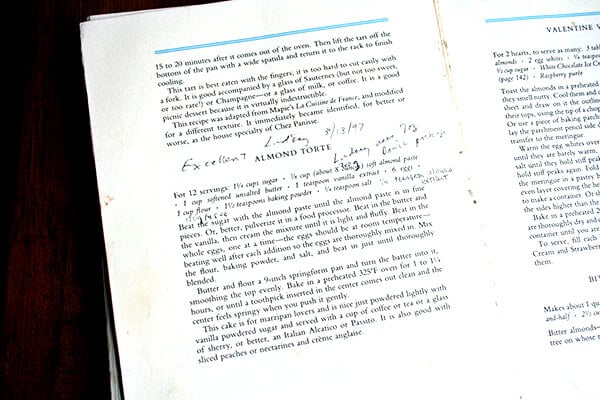 15 to 20 minutes after it comes out of the oven. Then lift the tart off the
bottom of the pan with a wide spatula and return it to the rack to finish
cooling.
This tart is best eaten with the fingers; it is too hard to cut easily with
a fork. It is good accompanied by a glass of Sauternes (but not too sweet,
or too rare!) or Champagne—or a glass of milk, or coffee. It is a good
picnic dessert because it is virtually indestructible.
This recipe was adapted from Mapie's La Cuisine de France, and modified
for a different texture. It immediately became identified, for better or
worse, as the house specialty of Chez Panisse.
Lindsey 8/13/97
Excellent
ALMOND TORTE
For 12 servings: 1¼ cups sugar · ⅞ cup soft almond paste
· 1 cup softened unsalted butter · 1 teaspoon vanilla extract · 6 eggs
1 cup flour · 1½ teaspoons baking powder · ¼ teaspoon salt
Beat the sugar with the almond paste until the almond paste is in fine
pieces. Or, better, pulverize it in a food processor. Beat in the butter and
the vanilla, then cream the mixture until it is light and fluffy. Beat in the
whole eggs, one at a time—the eggs should be at room temperature—
beating well after each addition so the eggs are thoroughly mixed in. Mix
the flour, baking powder, and salt, and beat in just until thoroughly
blended.
Butter and flour a 9-inch springform pan and turn the batter into it,
smoothing the top evenly. Bake in a preheated 325°F oven for 1 to 1¼
hours, or until a toothpick inserted in the center comes out clean and the
center feels springy when you push it gently.
This cake is for marzipan lovers and is nice just powdered lightly with
vanilla powdered sugar and served with a cup of coffee or tea or a glass
of sherry, or better, an Italian Aleatico or Passito. It is also good with
sliced peaches or nectarines and crème anglaise.
VALENTINE
For 2 hearts, to serve as many:
almonds · 2 egg whites ·
½ cup sugar · White Chocolate Ice
(page 142) · Raspberry
Toast the almonds in a preheated
they smell nutty. Cool them and
sheet and draw on it the outline
their tops, using the tip of a
Or use a piece of baking
lay the parchment pencil side
transfer to the meringue.
Warm the egg whites over
until they are barely warm.
salt until they hold stiff peaks
hold stiff peaks again. Fold
the meringue in a pastry
even layer covering the
to make a container. Or
the sides higher than the
Bake in a preheated
are thoroughly dry and
container until you are
To serve, fill each
Cream and Strawberry
them.
Makes about 1
and-half · 2½
Bitter almonds—
tree on whose